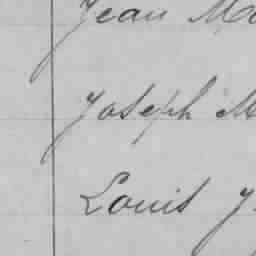 Jean Ma
Joseph M
Louis J